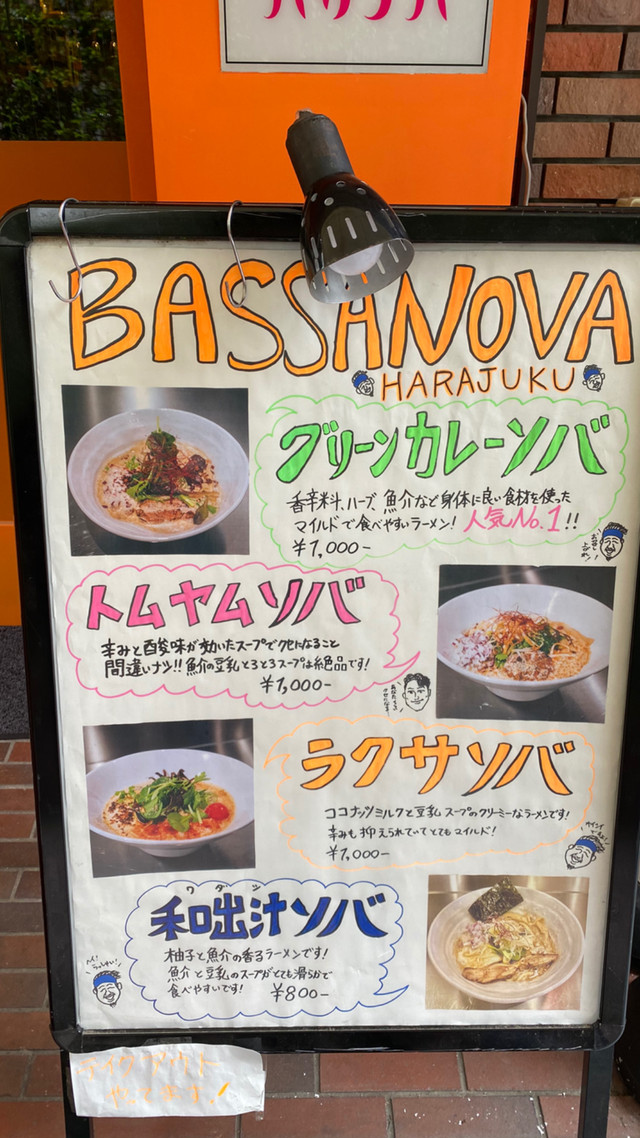 バサノバ
BASSANOVA
HARAJUKU
グリーンカレーソバ
香辛料、ハーブ、魚介など身体に良い食材を使った
マイルドで食べやすいラーメン! 人気No.1!!
¥1,000-
トムヤムソバ
辛みと酸味が効いたスープでクセになること
間違いナシ!!魚介の豆乳とろとろスープは絶品です!
¥1,000-
ラクサソバ
ココナッツミルクと豆乳スープのクリーミーなラーメンです!
辛みも抑えられていてとてもマイルド!
¥1,000-
ワダシ
和出汁ソバ
柚子と魚介の香るラーメンです!
魚介と豆乳のスープがとても滑らかで
食べやすいです! ¥800-
テイクアウト
やってます!